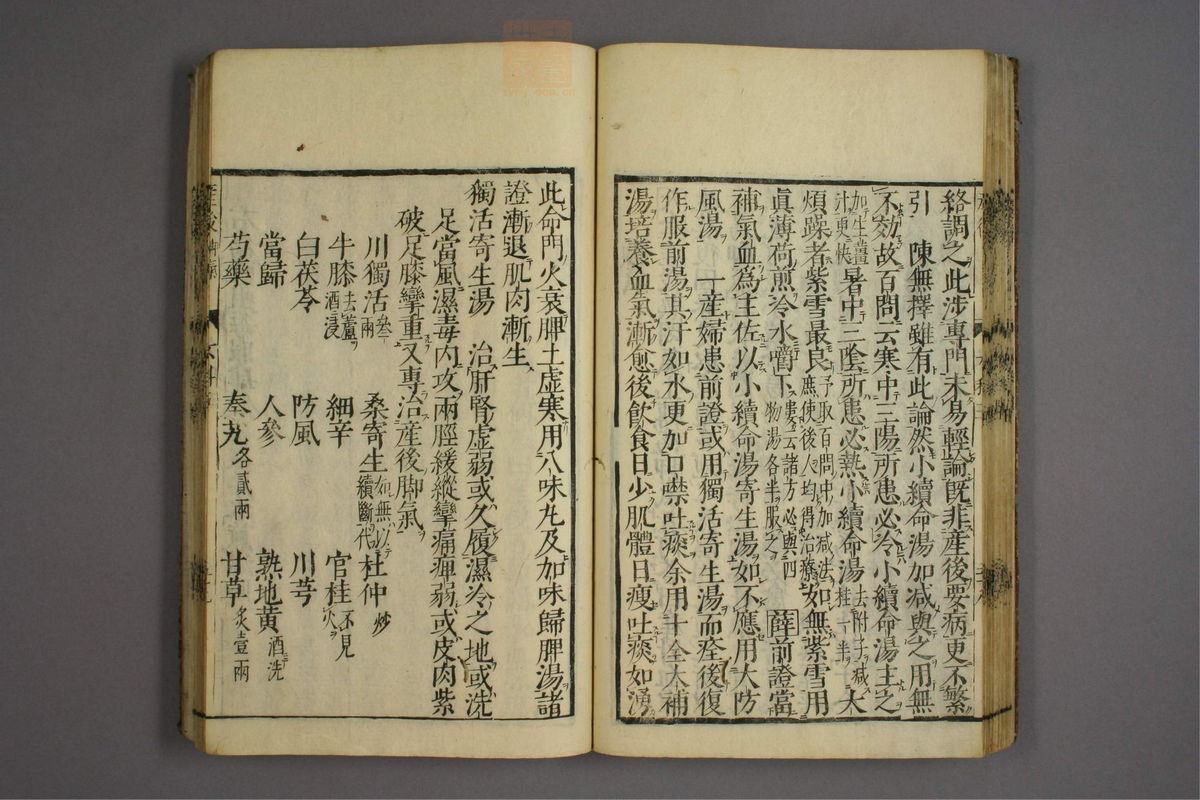 絡調之此涉專門未易輕論既非產後要病更不繁
引　陳無擇雖有此論然小續命湯加减與之用無
不効故百問云寒中三陽所患必冷小續命湯主之
加生薑汁更快暑中三陰所患必熱小續命湯去附子减桂一半大
煩躁者紫雪最良予取百問中加减法庶使後人均得治療如無紫雪用
眞薄荷煎冷水嚼下婁云諸方必與四物湯各半服之　薛前證當
補氣血為主佐以小續命湯寄生湯如不應用大防
風湯　一產婦患前證或用獨活寄生湯而痊後復
作服前湯其汗如水更加口噤吐痰余用十全大補
湯培養血氣漸愈後飲食日少肌體日瘦吐痰如湧
此命門火衰脾土虛寒用八味丸及加味歸脾湯諸
證漸退肌肉漸生
獨活寄生湯　治肝腎虛弱或久履濕冷之地或洗
足當風濕毒內攻兩脛緩縱攣痛痺弱或皮肉紫
破足膝攣重又專治產後脚氣
川獨活叁兩　桑寄生如無以續斷代　杜仲炒
牛膝去蘆酒浸　細辛　官桂不見火
白茯苓　防風　川芎
當歸　人參　熟地黃酒洗
芍藥　秦艽各貳兩　甘草炙壹兩